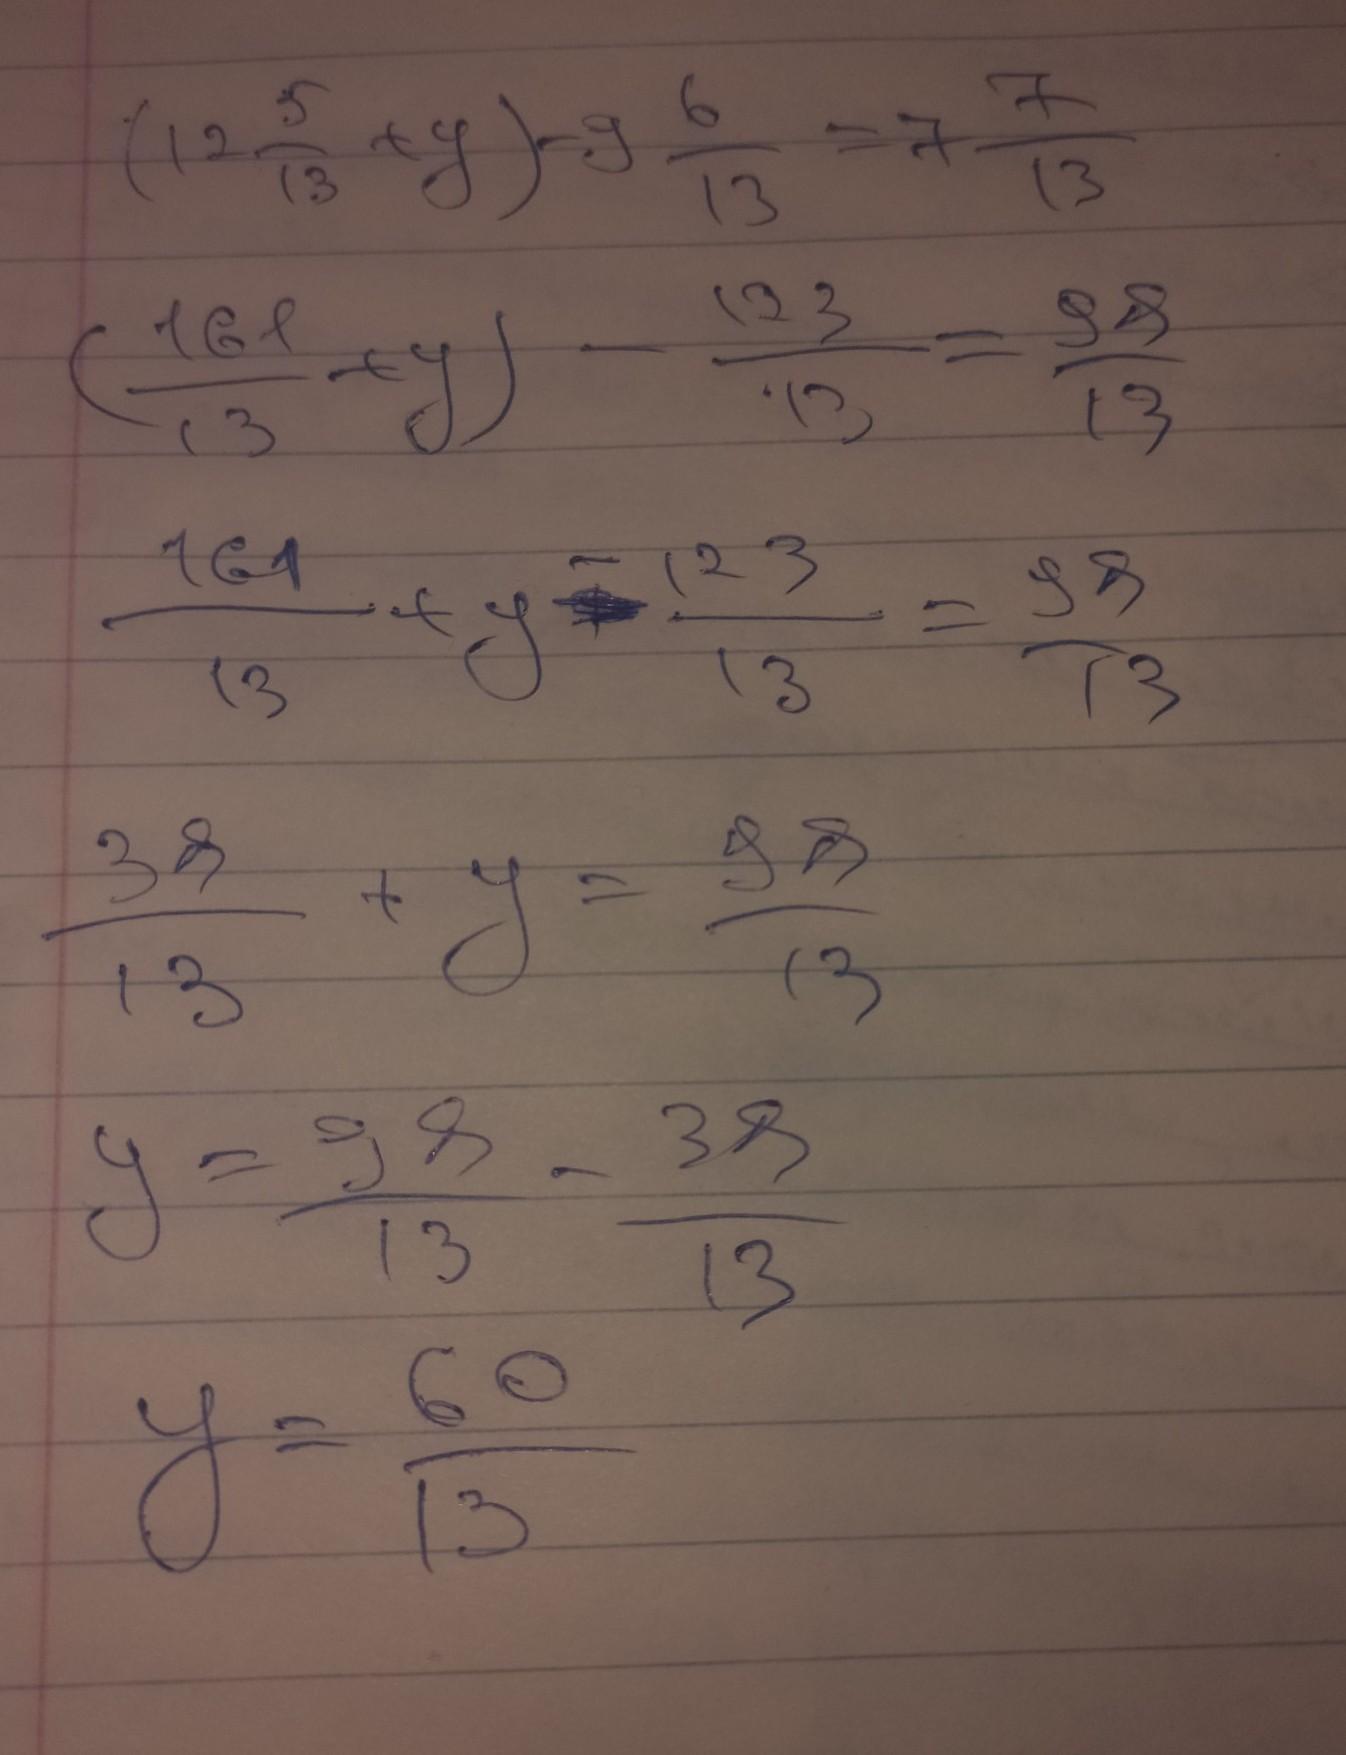 (12 5/13 + y) - 9 6/13 = 7 7/13
(161/13 + y) - 123/13 = 98/13
161/13 + y - 123/13 = 98/13
38/13 + y = 98/13
y = 98/13 - 38/13
y = 60/13